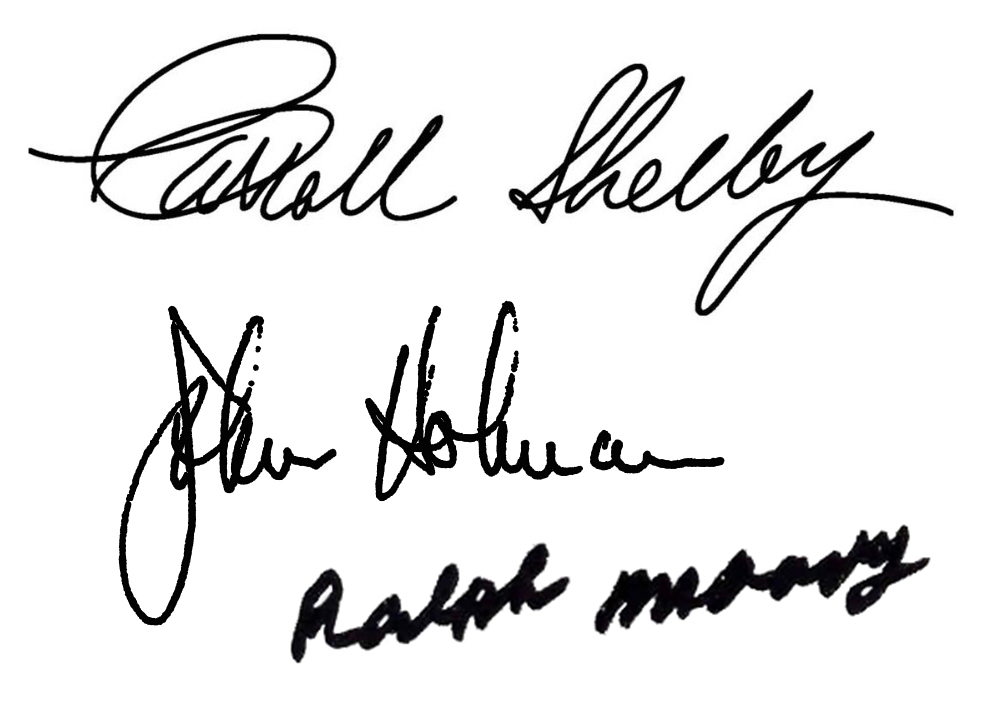 Carroll Shelby
John Holman
Ralph Moody